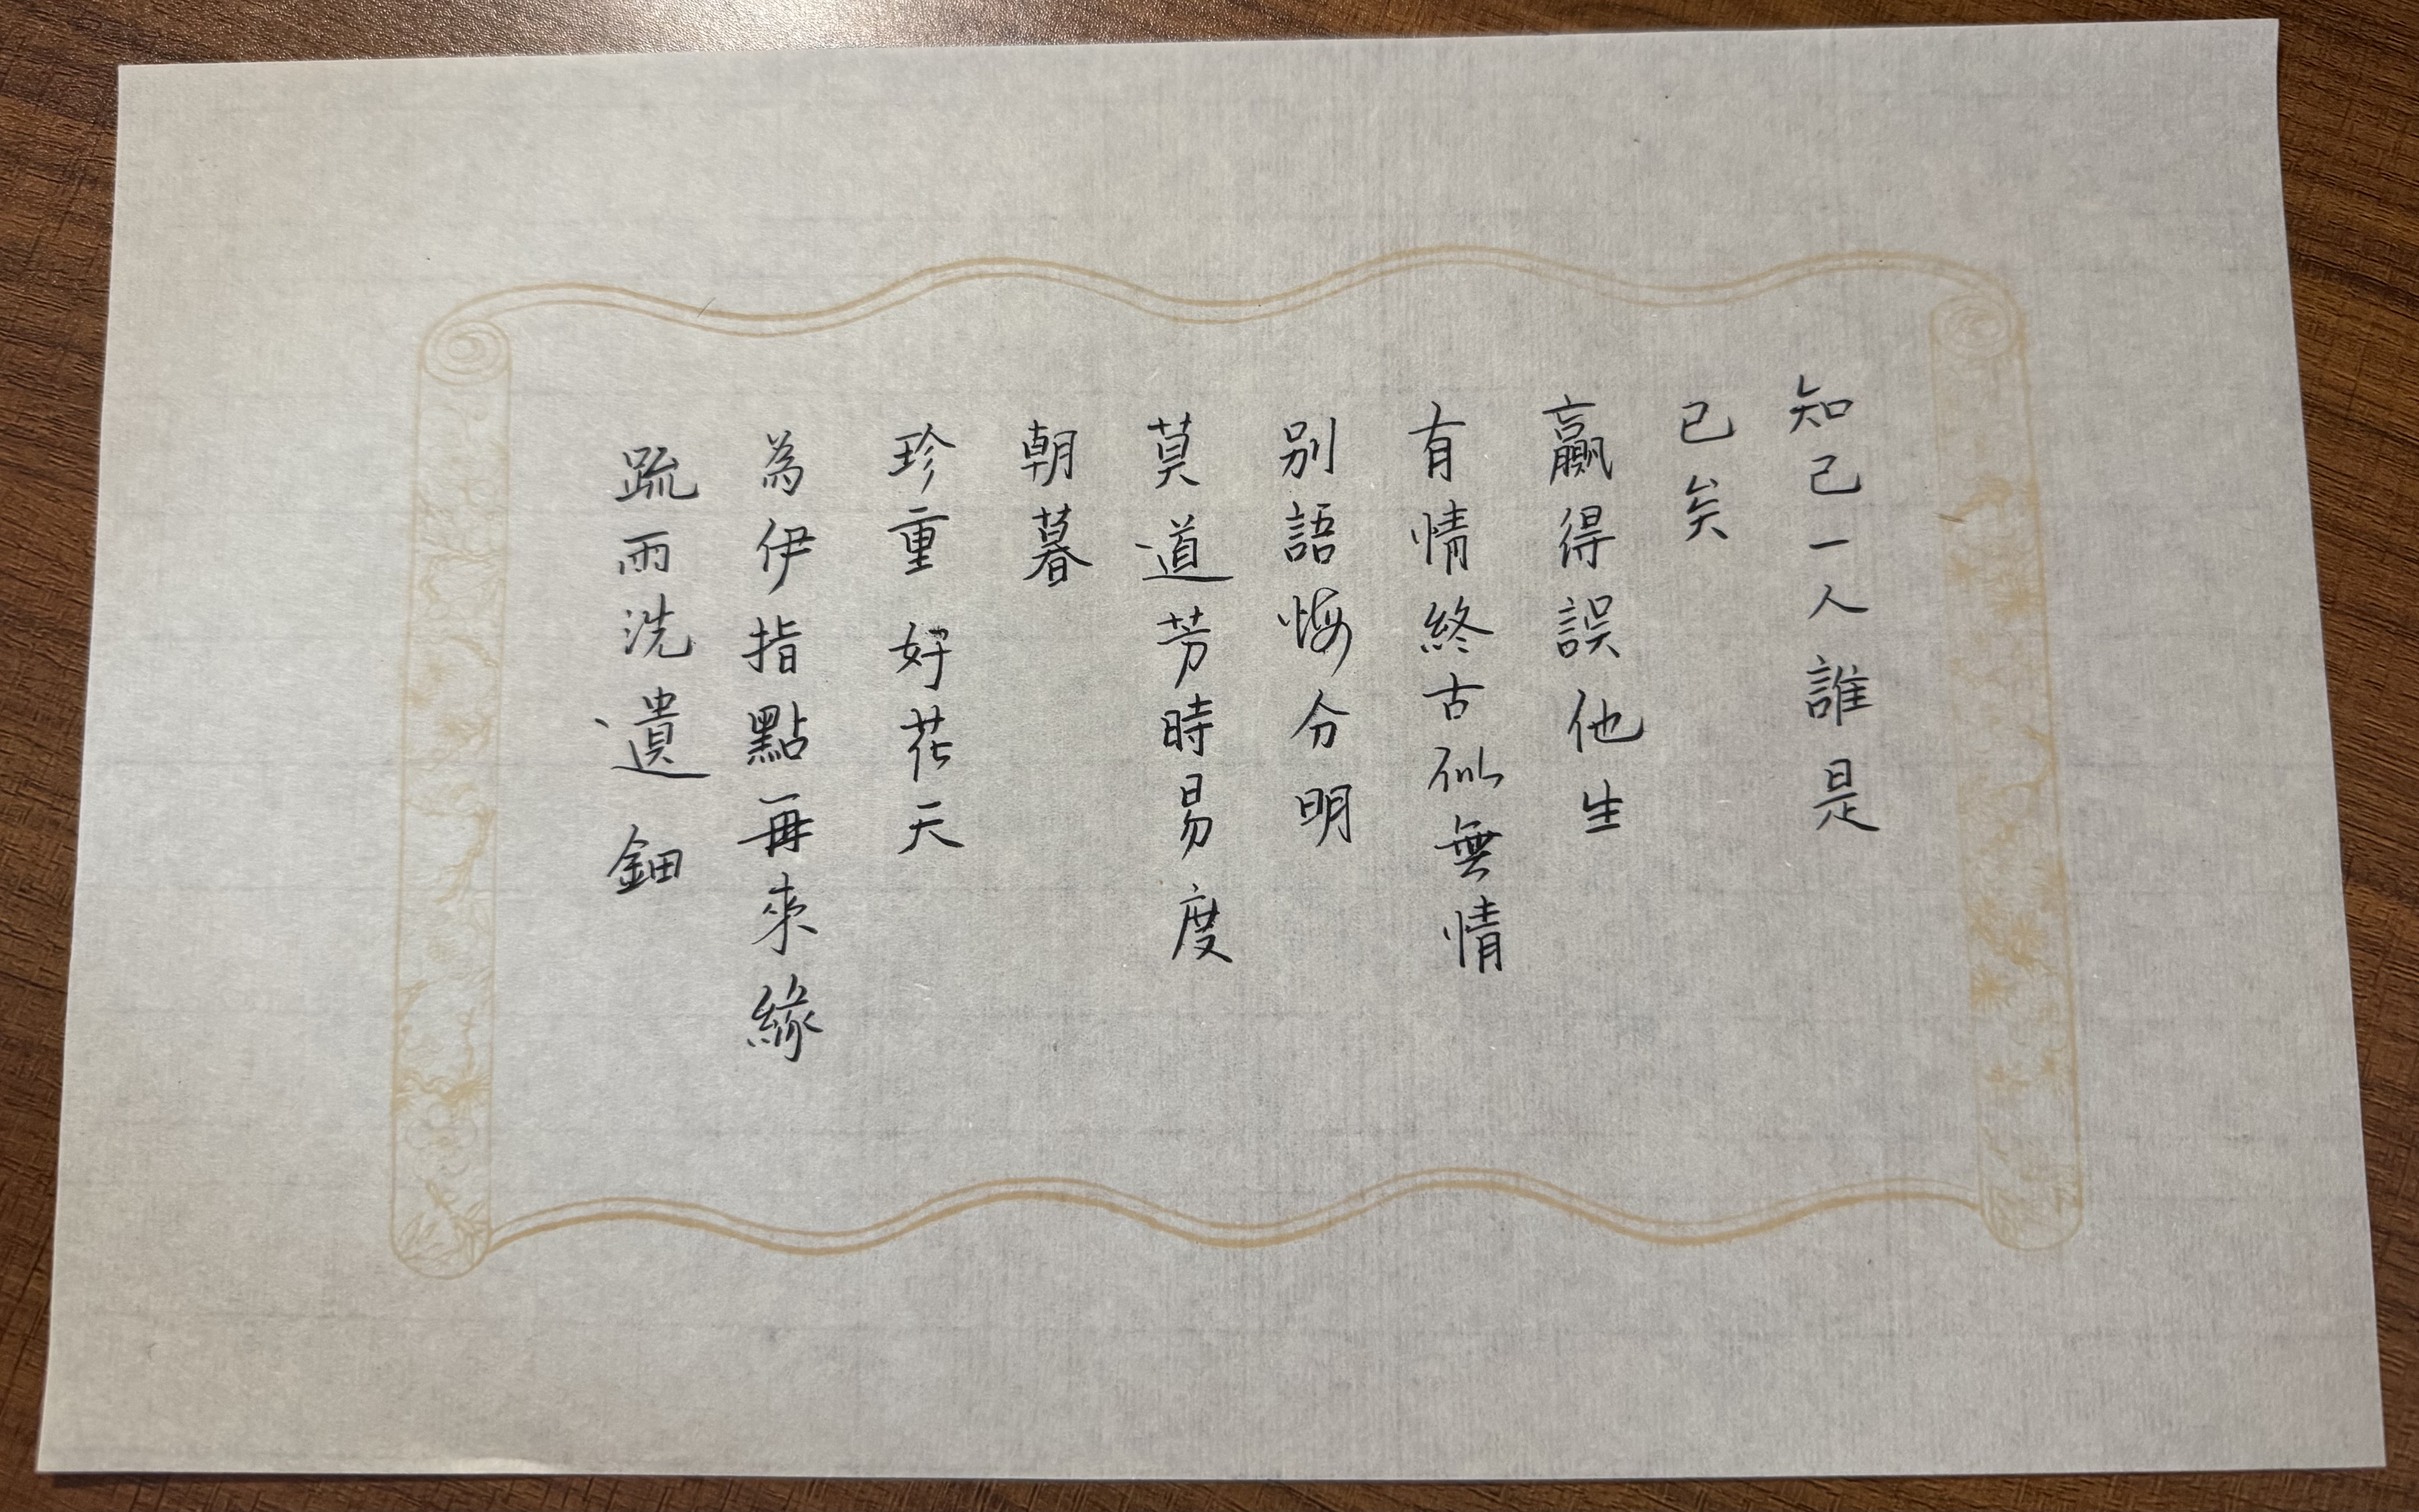 知己一人誰是
已矣
贏得誤他生
有情終古似無情
別語悔分明
莫道芳時易度
朝暮
珍重好花天
為伊指點再來緣
疏雨洗遺鈿